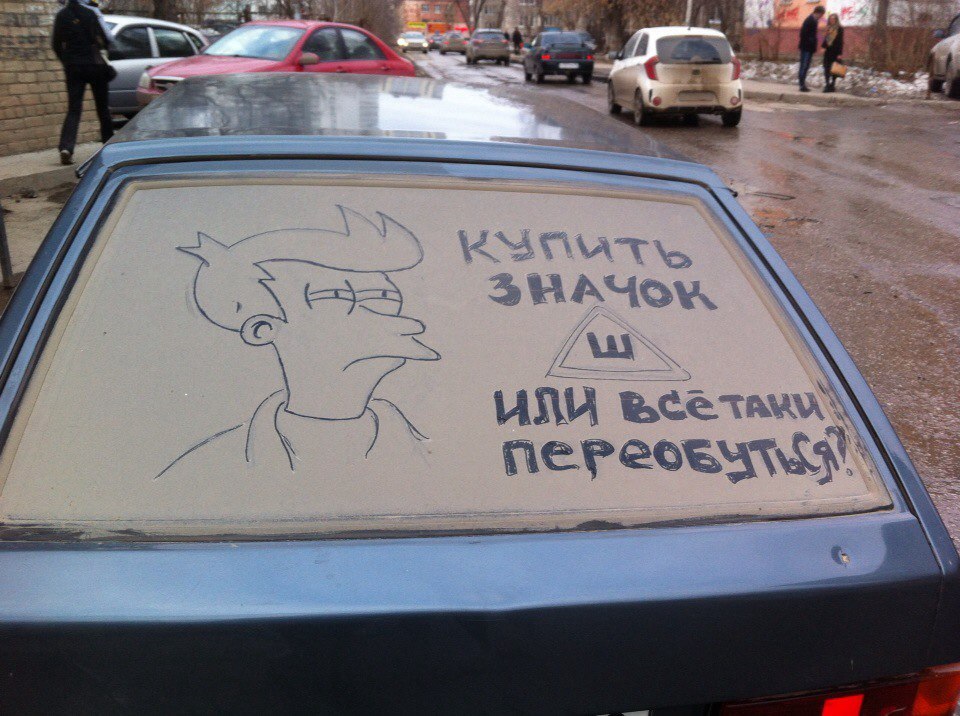 КУПИТЬ
ЗНАЧОК
Ш
ИЛИ ВСЁ ТАКИ
ПЕРЕОБУТЬСЯ?